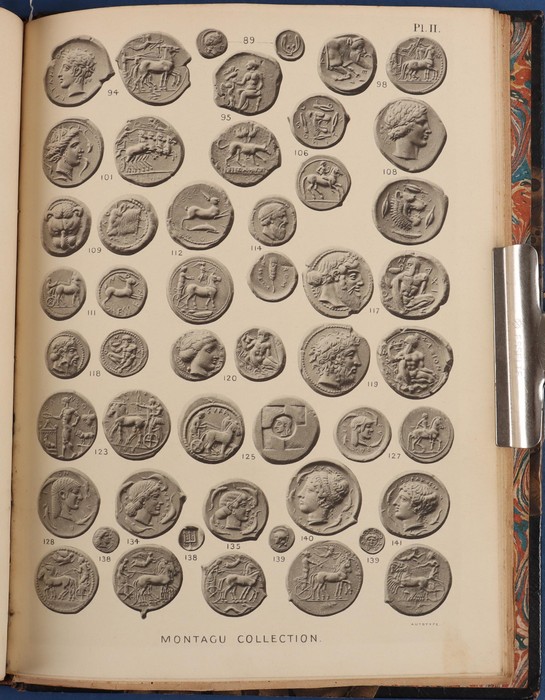 Pl. II.
89
94
98
95
106
101
108
109
112
114
111
117
118
120
119
123
125
127
128
134
135
140
141
138
138
139
139
MONTAGU COLLECTION.
AUTOTYPE